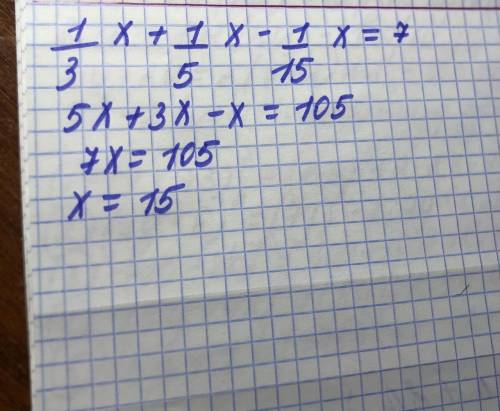 1/3 x + 1/5 x - 1/15 x = 7
5x + 3x - x = 105
7x = 105
x = 15